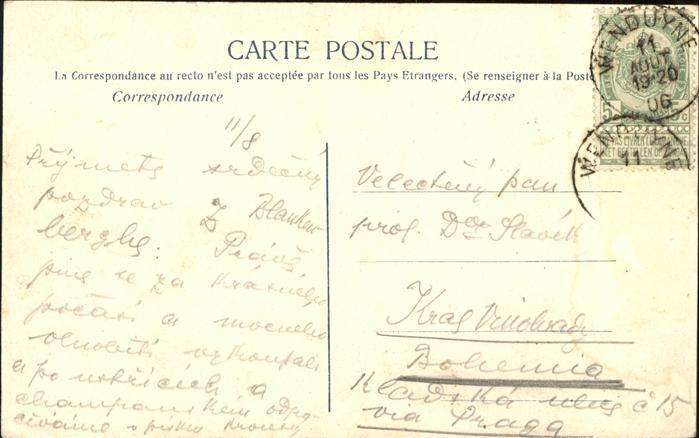 CARTE POSTALE
La Correspondance au recto n'est pas acceptée par tous les Pays Etrangers. (Se renseigner à la Poste
Correspondance
Adresse
WENDUYNE
11
AOUT
19-20
06
WENDUYNE
11
11/8
Přijměte srdečný
pozdrav z Blanken
berghe. Právě
jsme se za krásného
počasí a
vykoupali
a po ústřicích a
champaňském odpo
číváme v písku
Velectěný pan
prof. Dr Slavík
Král Vinohrady
Bohemia
Kladská ulice č 15
via Praga